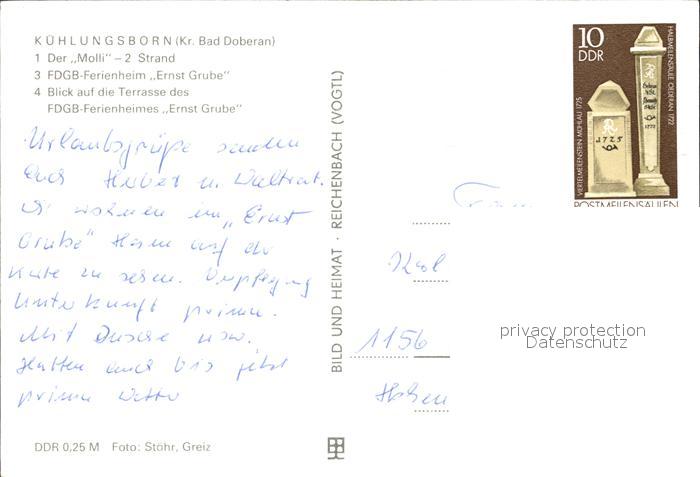 KÜHLUNGSBORN (Kr. Bad Doberan)
1 Der „Molli" – 2 Strand
3 FDGB-Ferienheim „Ernst Grube"
4 Blick auf die Terrasse des
FDGB-Ferienheimes „Ernst Grube"
Urlaubsgrüße senden
Euch Hubert u. Waltrat.
Wir wohnen im „Ernst
Grube" Heim auf der
Karte zu sehen. Verpflegung
Unterkunft prima.
Mit Dusche usw.
Hatten auch bis jetzt
prima Wetter
DDR 0,25 M Foto: Stöhr, Greiz
BILD UND HEIMAT · REICHENBACH (VOGTL)
10
DDR
VIERTELMEILENSTEIN MÜHLAU 1725
HALBMEILENSÄULE OEDERAN 1722
1725
1722
POSTMEILENSÄULEN
1156
privacy protection
Datenschutz